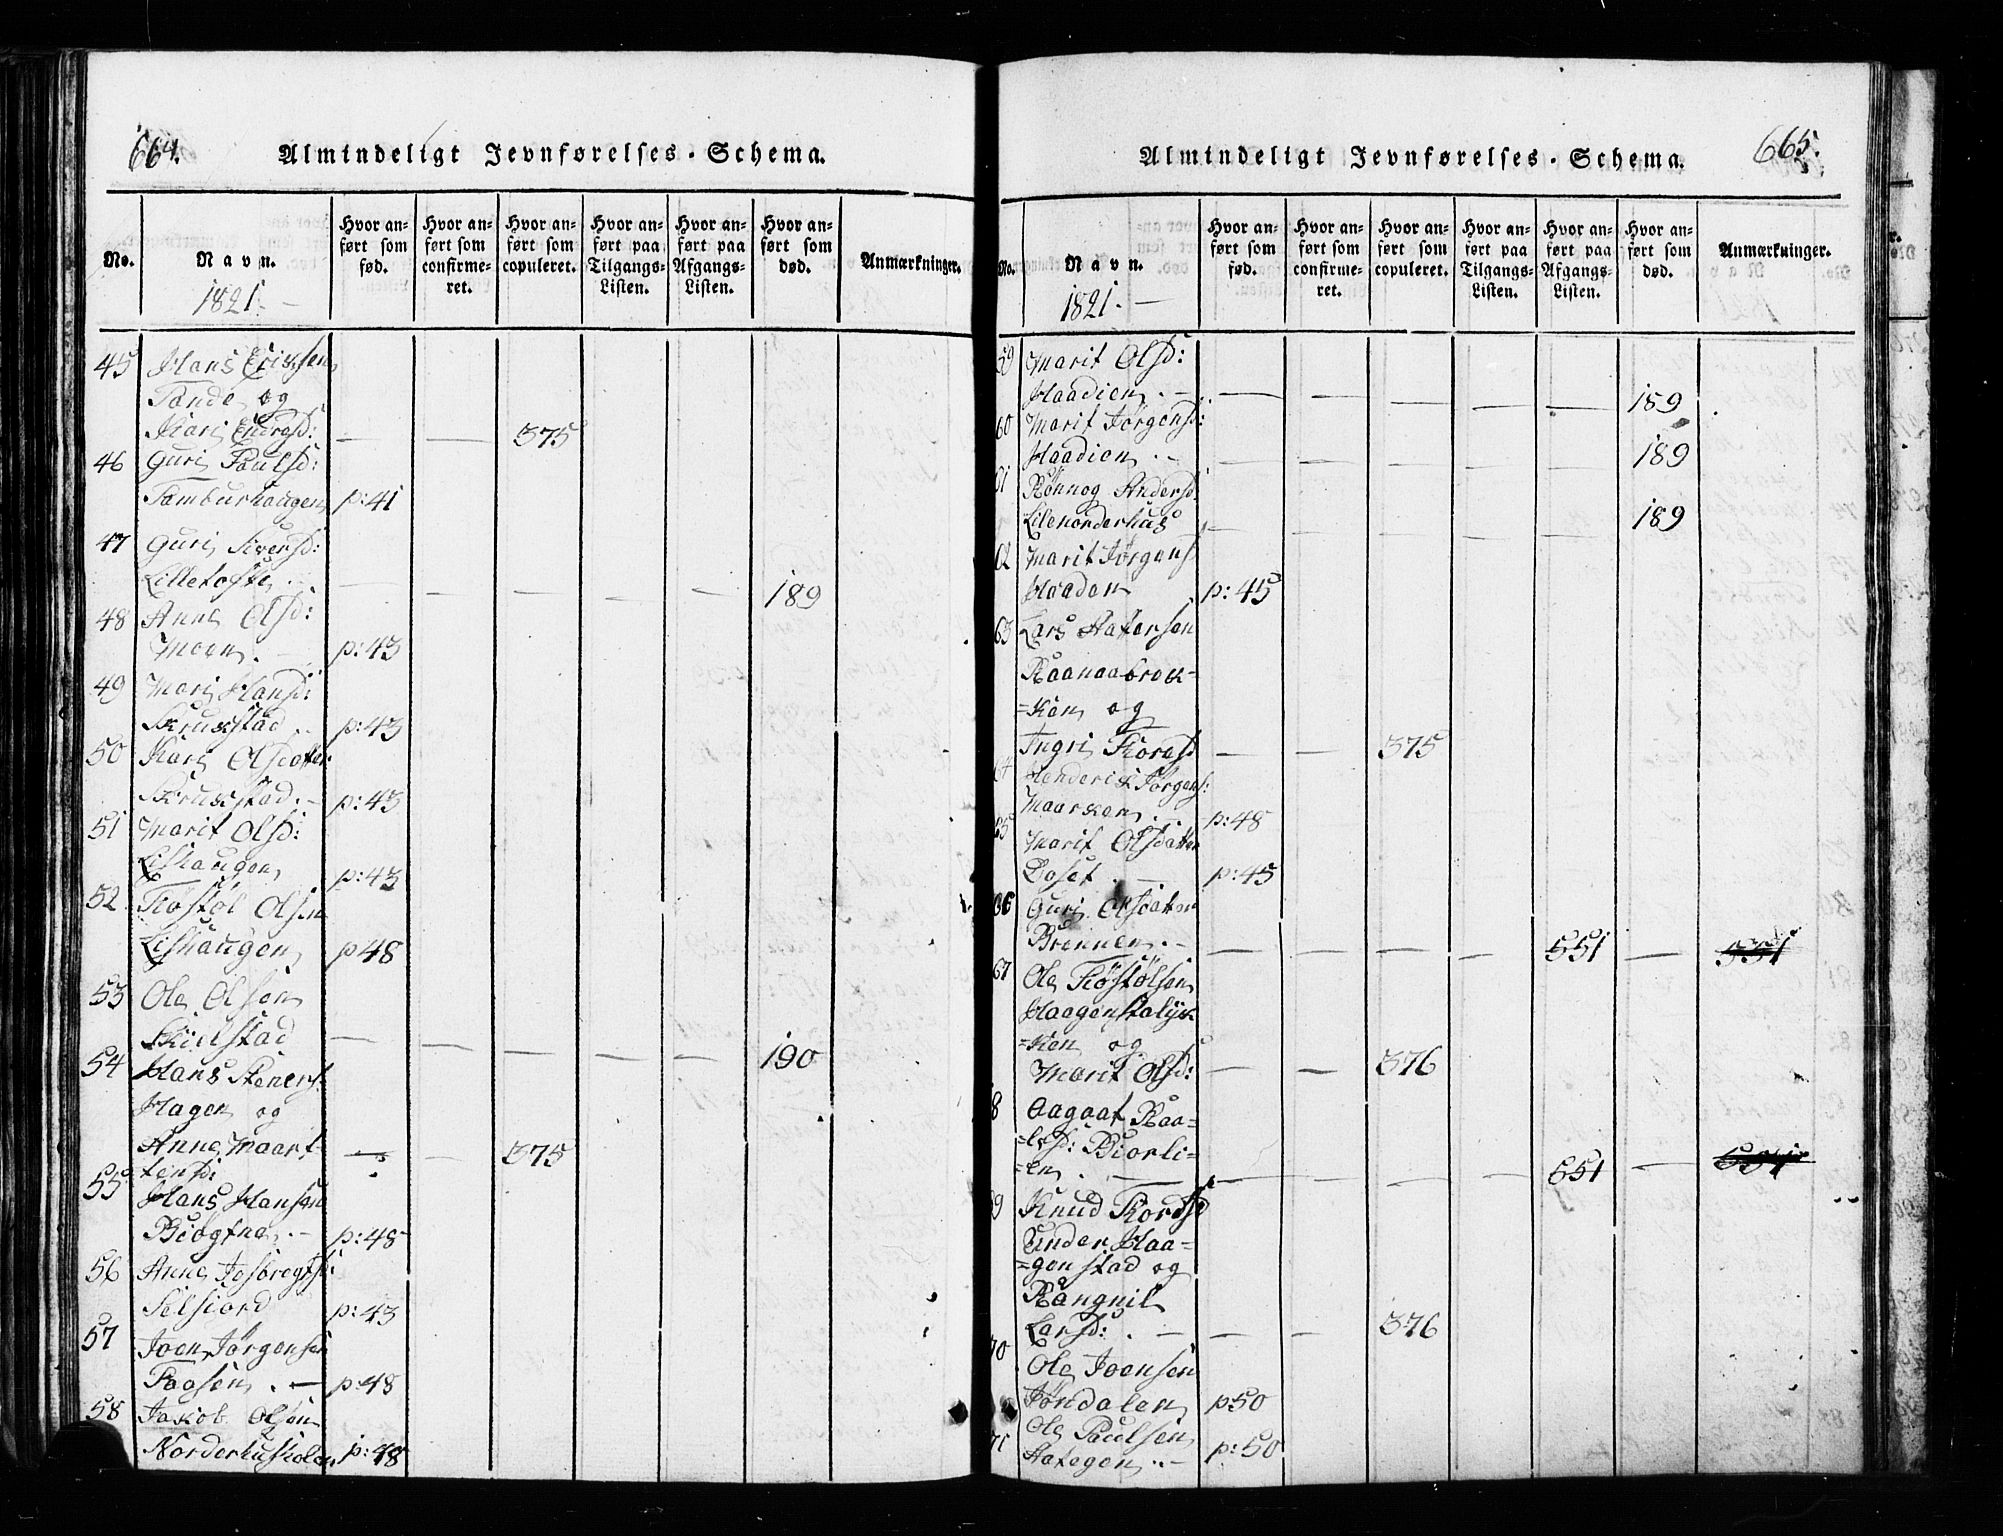 664.
Almindeligt Jevnførelses-Schema.
No.
Navn.
1821.
Hvor anført som født.
Hvor anført som confirmeret.
Hvor anført som copuleret.
Hvor anført paa Tilgangs-Listen.
Hvor anført paa Afgangs-Listen.
Hvor anført som død.
Anmærkninger.
45 Hans Erichsen
Tande og
Kari Endresd: — — 375
46 Guri Paulsd:
Tamburhaugen p:41
47 Guri Siversd:
Lilletofte — — — — — 189
48 Anne Olsd:
Moen. p:43
49 Mari Hansd:
Skrukstad p:43
50 Kari Olsdatter
Skrukstad. p:43
51 Marit Olsd:
Lishaugen p:43
52 Tostøl Olsen
Lishaugen p48
53 Ole Olsen
Skielstad — — — — — 190
54 Hans Steners:
Hagen og
Anne Maart-
tensd: — — 375
55 Hans Hansen
Biogtne. p:48
56 Anne Tosbregtsd:
Selsiord p:43
57 Joen Jørgensen
Taasen. — p:48
58 Jakob Olsen
Norderhuskolen p:48
665.
Almindeligt Jevnførelses-Schema.
No.
Navn.
1821.
Hvor anført som født.
Hvor anført som confirmeret.
Hvor anført som copuleret.
Hvor anført paa Tilgangs-Listen.
Hvor anført paa Afgangs-Listen.
Hvor anført som død.
Anmærkninger.
59 Marit Olsd:
Haadien. — — — — — 189
60 Marit Jørgensd:
Haadien. — — — — — 189
61 Rønnog Andersd
Lilenorderhus — — — — — 189
62 Marit Jørgens
Haaden p:45
63 Lars Hatersen
Raanaabrok-
=ken og
Ingri Toresd — — 375
64 Henderik Jørgens:
Maarken. p:48
65 Marit Olsdatter
Boset. — p:45
66 Guri Olsdatter
Brennen. — — — — 551 — 551
67 Ole Tostølsen
Haagenstalyk
=ken og
Marit Olsd: — — 376
8 Aagaat Raa-
=lsd: Biorli-
=en. — — — — 551 — 551
9 Knud Tordsd
Under Haa=
=genstad og
Rangnil
Larsd: — — — 376
70 Ole Joensen
Jøndalen p:50
71 Ole Paulsen
Hategen. p:50